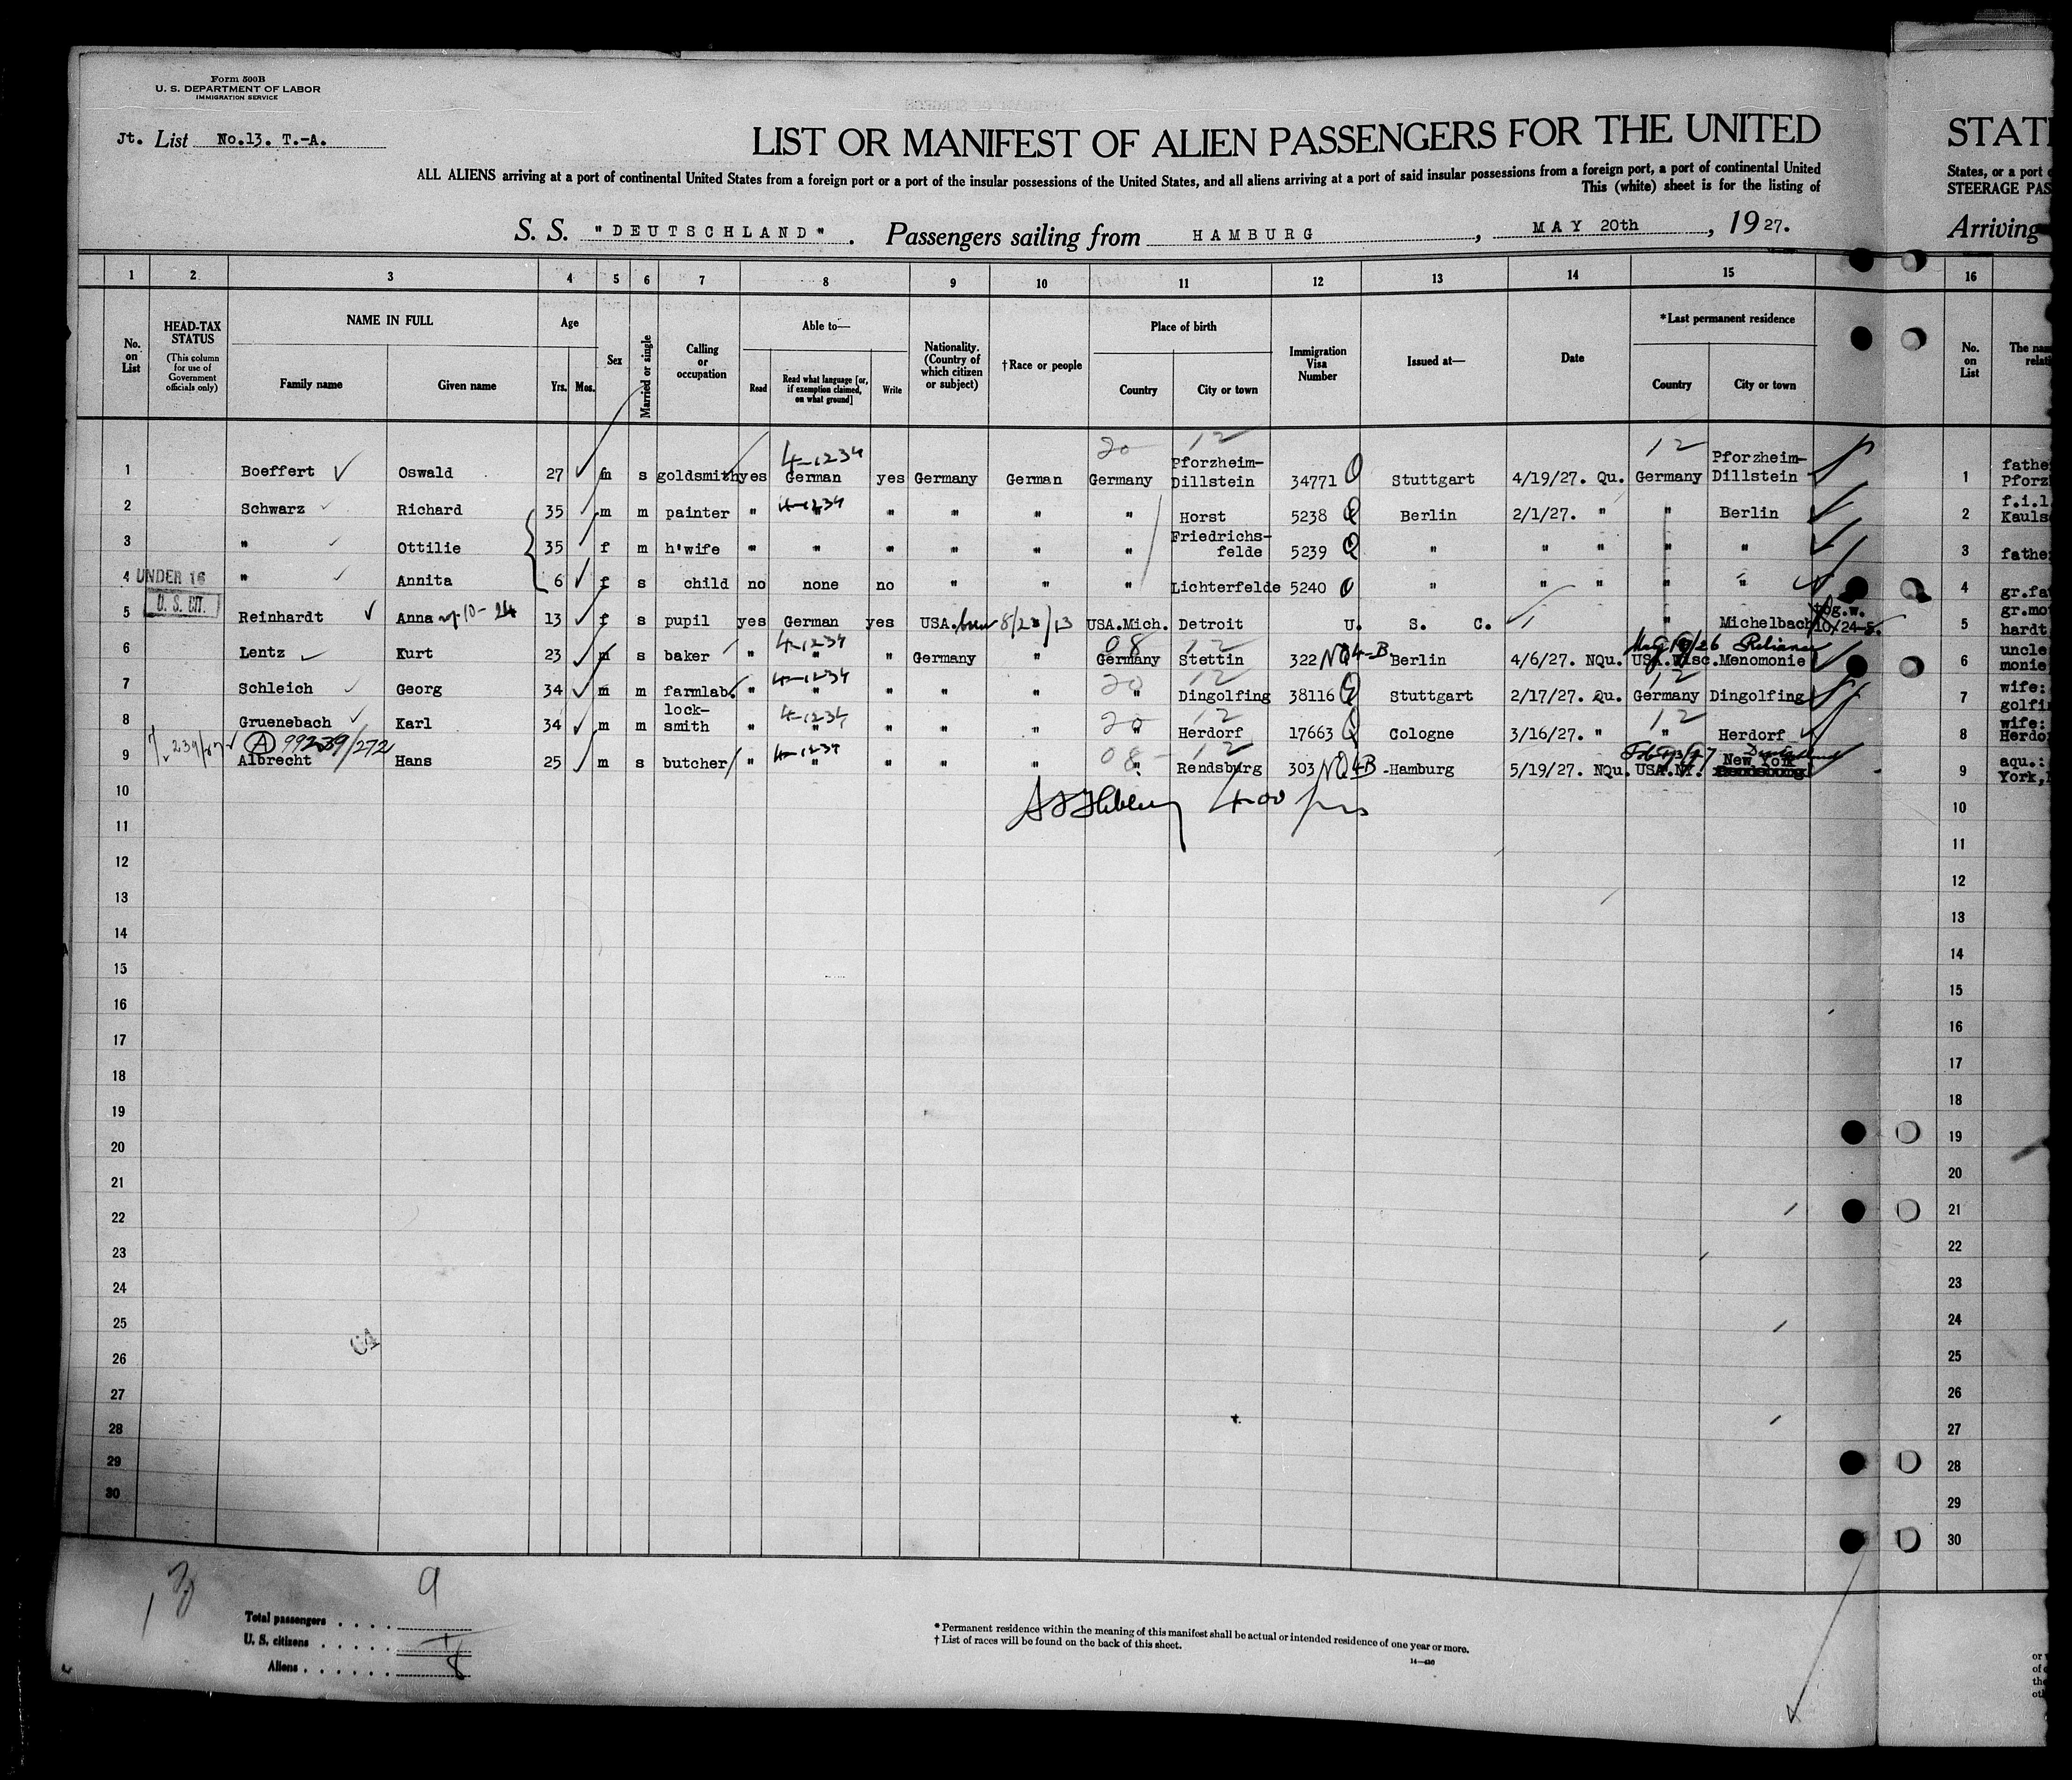 Form 500B
U. S. DEPARTMENT OF LABOR
IMMIGRATION SERVICE
Jt. List No.13. T.-A.
LIST OR MANIFEST OF ALIEN PASSENGERS FOR THE UNITED
STAT
ALL ALIENS arriving at a port of continental United States from a foreign port or a port of the insular possessions of the United States, and all aliens arriving at a port of said insular possessions from a foreign port, a port of continental United
States, or a port
This (white) sheet is for the listing of
STEERAGE PAS
S. S. "DEUTSCHLAND". Passengers sailing from HAMBURG, MAY 20th, 1927.
Arriving
1 2 3 4 5 6 7 8 9 10 11 12 13 14 15 16
No. on List
HEAD-TAX STATUS
(This column for use of Government officials only)
NAME IN FULL
Family name Given name
Age
Yrs. Mos.
Sex
Married or single
Calling or occupation
Able to—
Read
Read what language [or, if exemption claimed, on what ground]
Write
Nationality. (Country of which citizen or subject)
†Race or people
Place of birth
Country City or town
Immigration Visa Number
Issued at—
Date
*Last permanent residence
Country City or town
No. on List
The nam
relati
20 12 12
4-1234
1 Boeffert Oswald 27 m s goldsmith yes German yes Germany German Germany Pforzheim-Dillstein 34771 Q Stuttgart 4/19/27. Qu. Germany Pforzheim-Dillstein 1 fathe Pforz
4-1234
2 Schwarz Richard 35 m m painter " " " " " " Horst 5238 Q Berlin 2/1/27. " " Berlin 2 f.i.l Kauls
3 " Ottilie 35 f m h'wife " " " " " " Friedrichs-felde 5239 Q " " " " " 3 fathe
4 UNDER 16 " Annita 6 f s child no none no " " " Lichterfelde 5240 Q " " " " " 4 gr.fa
U. S. CIT.
5 Reinhardt Anna 10-24 13 f s pupil yes German yes USA. born 8/23/13 USA.Mich. Detroit U. S. C. " Michelbach 10/24-5. 5 gr.mo hardt
4-1234 08 12
6 Lentz Kurt 23 m s baker " " " Germany " Germany Stettin 322 NQ 4-B Berlin 4/6/27. NQu. USA.Wisc. Menomonie 6 uncle monie
4-1234 20 12 12
7 Schleich Georg 34 m m farmlab. " " " " " " Dingolfing 38116 Q Stuttgart 2/17/27. Qu. Germany Dingolfing 7 wife: golfi
4-1234 20 12 12
8 Gruenebach Karl 34 m m lock-smith " " " " " " Herdorf 17663 Q Cologne 3/16/27. " " Herdorf 8 wife: Herdo
A 99239/272
4-1234 08 12
9 Albrecht Hans 25 m s butcher " " " " " " Rendsburg 303 NQ 4B -Hamburg 5/19/27. NQu. USA.NY. New York 9 aqu.: York,
10 4-00 10
11 11
12 12
13 13
14 14
15 15
16 16
17 17
18 18
19 19
20 20
21 21
22 22
23 23
24 24
25 25
26 26
27 27
28 28
29 29
30 30
9
Total passengers
U. S. citizens 1
Aliens 8
* Permanent residence within the meaning of this manifest shall be actual or intended residence of one year or more.
† List of races will be found on the back of this sheet.